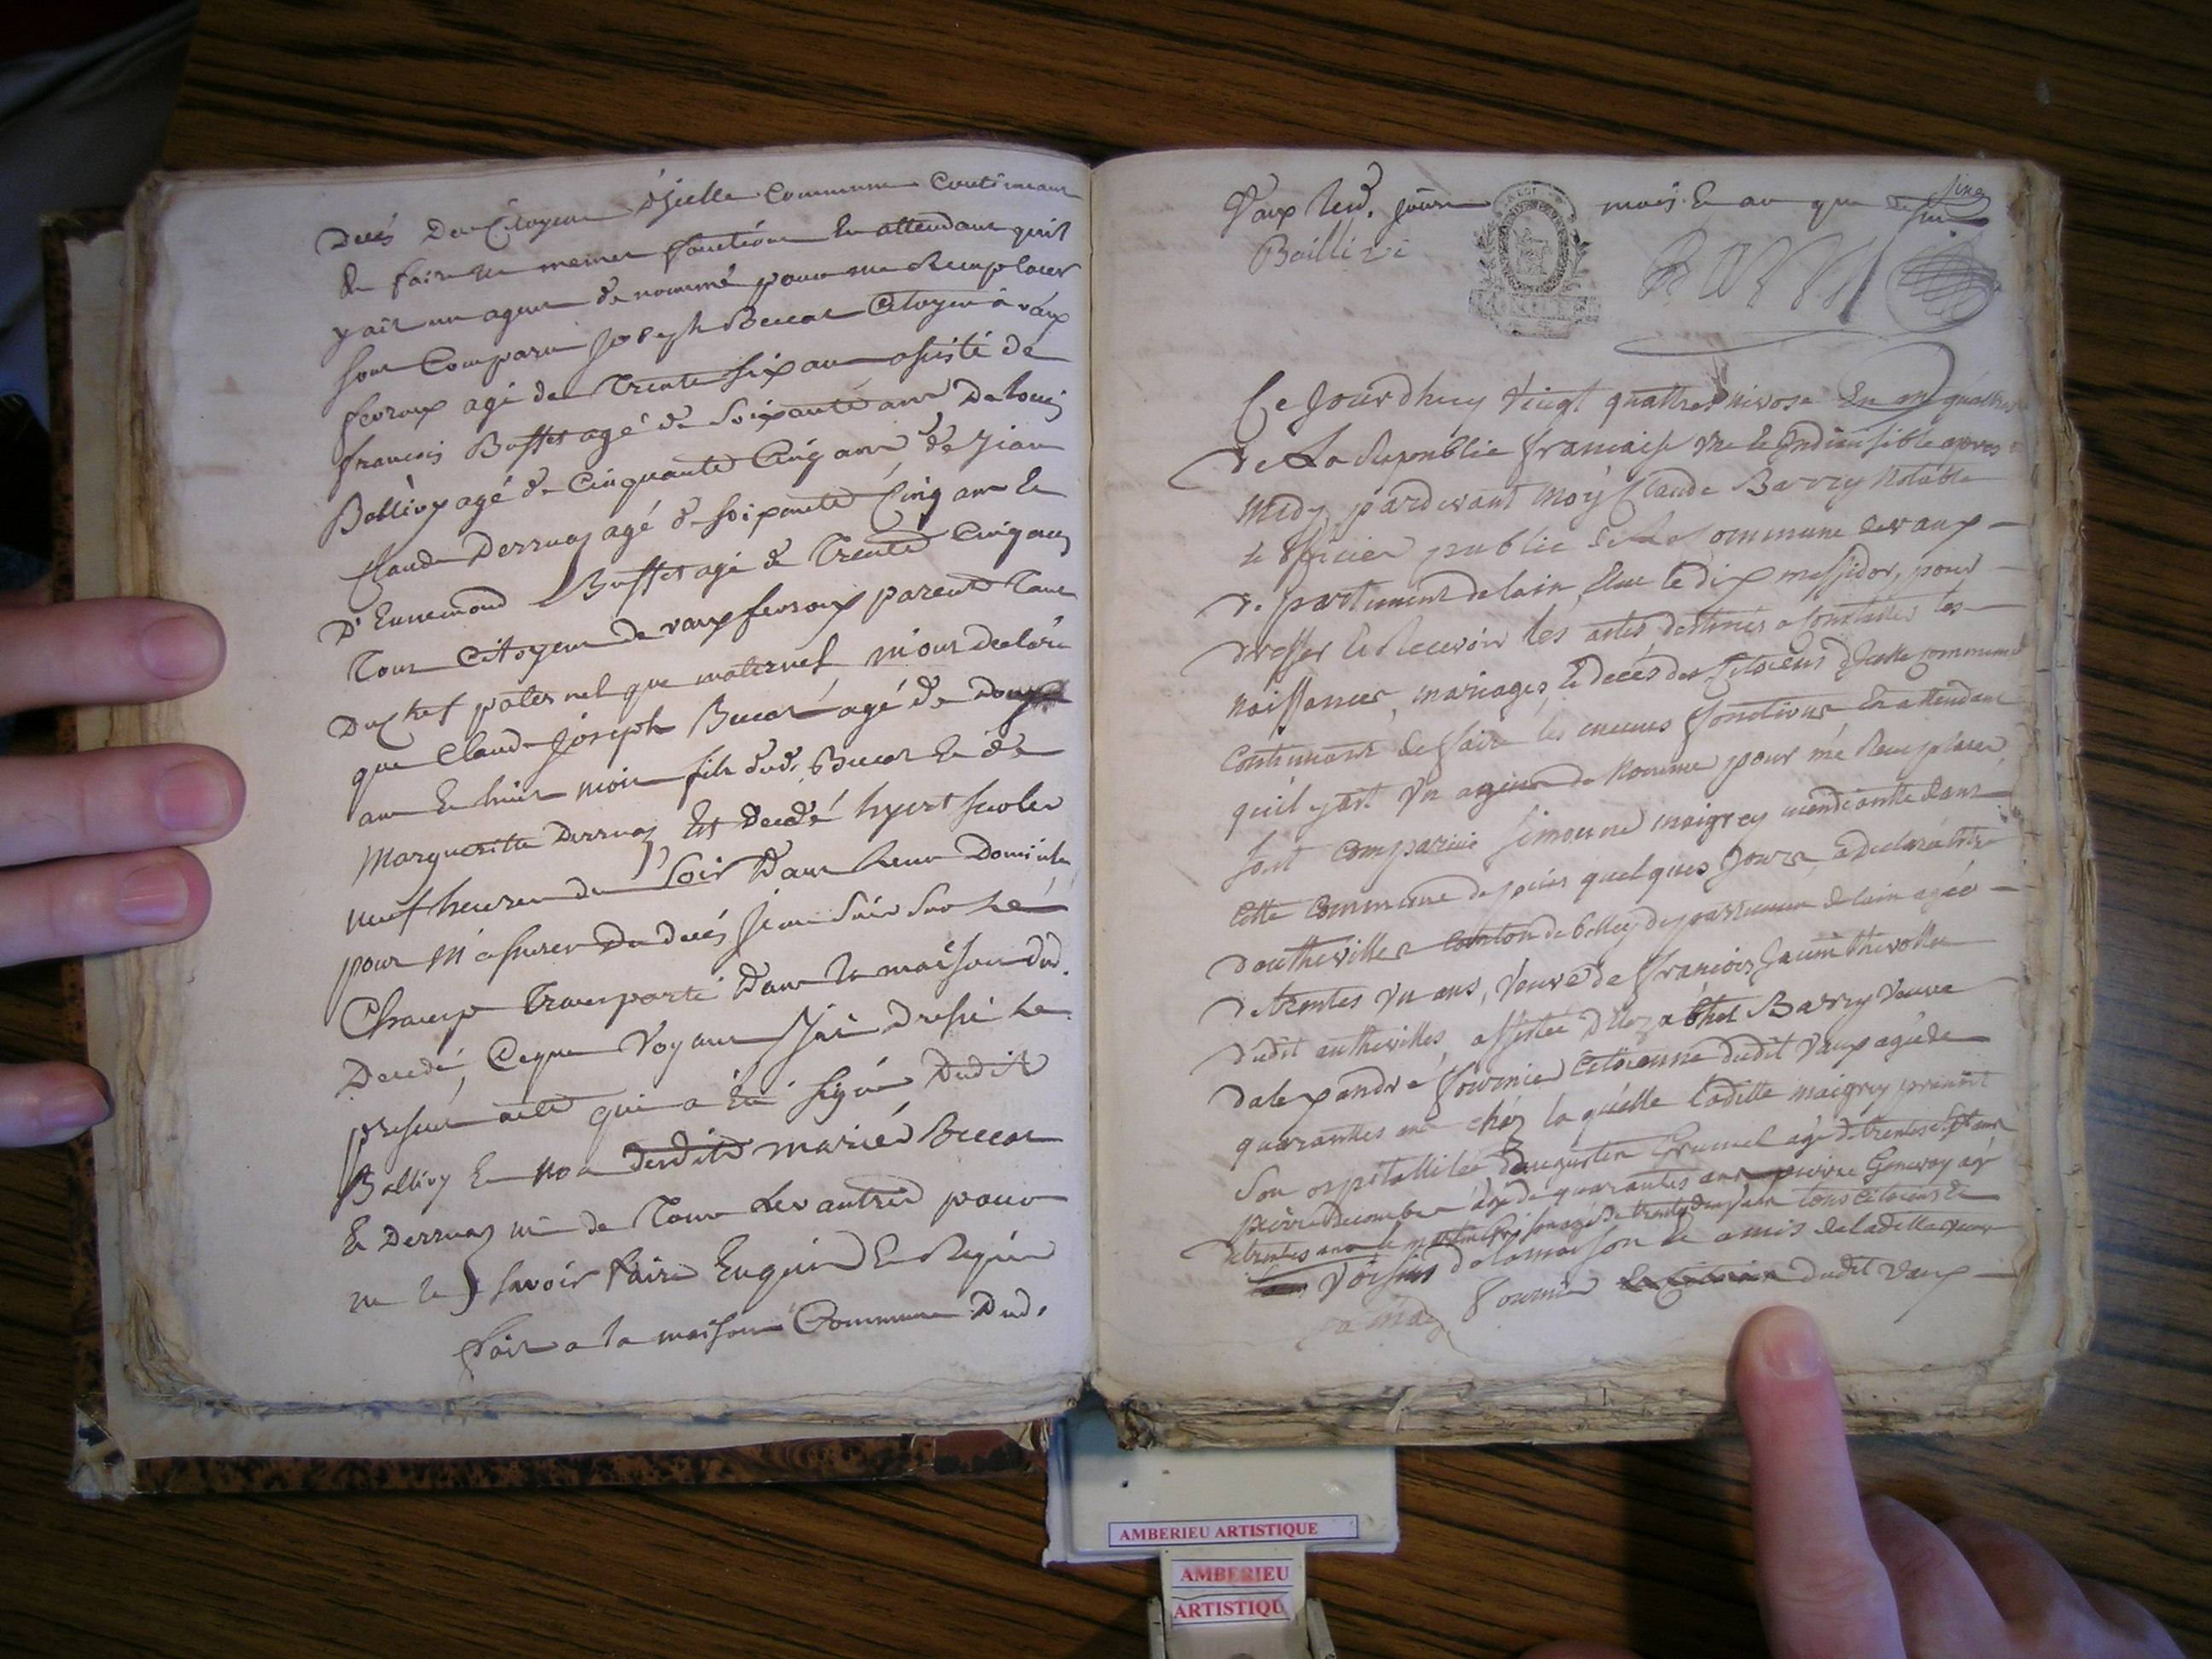 Decés Des Citoyens D'jcelle Commune Continuant
De faire les memes fonctions En attendant quil
y ait un agent de nommé pour me Remplacer
sont Comparu Joseph Beccat Citoyen a vaux
fevroux agé de Trente six ans assisté de
francois Buffet agé de soixante ans De louis
Bollivy agé de Cinquante Cinq ans de Jean
Claude Derruaz agé de soixante Cinq ans Et
D'Ennemond Buffet agé de Trente Cinq ans
Tous Citoyens de vaux fevroux parents Tant
Du Chef paternel que maternel, m'ont declaré
que Claude Joseph Beccat agé de
ans En huit mois fils dud. Beccat Et de
Marguerite Derruaz Est Decedé hyert sur les
neuf heures du soir Dans leur Domicile
pour m'assurer Du decés Je me suis sur le
Champ Transporté Dans la maison dud.
Decedé, Ce que Voyant J'ai Dressé le
present acte qui a Eté signé Dudit
Bollivy Et non desdits mariés Beccat
Et Derruaz ni de Tous Les autres pour
ne le savoir faire Enquis Et Requis
fait a la maison Commune Dud.
Vaux lesd. jour mois Et an que
Baillivi
Ce Jourdhuy Vingt quattres nivose En md quattres
de La Republic francaise Une Et Indiuisible apres
Midy pardevant Moy Claude Barry Notable
et officier public de La Commune devaux
departement de lain, Elue le dix messidor, pour
dresser Et Recevoir les actes destinés a Constatter les
Naissances, mariages, Et decés des Citoiens d'Jcelle Commune
Continuant de faire les memes fonctions En attendant
quil y ait Un agent de Nomme pour mé Remplacer
sont Comparue Simonne maigrey mendiante dans
Cette Commune depuis quelques Jours,
Canton de belley departement de lain agée
de trentes Un ans, Veuve de francois
dudit assistée d'Elizabhet Barry Veuve
dalexandre fournier Citoienne dudit Vaux agée de
quarantes ans chéz la quélle laditte maigrey prenoit
Son ospitallitée d'augustin Grumel agé de trentes Sept ans
pierre age de quarantes ans pierre agé
de trentes ans tous Citoiens
Voisins de la maison Et amis de laditte veuve
fournier dudit Vaux
AMBERIEU ARTISTIQUE
AMBERIEU
ARTISTIQU